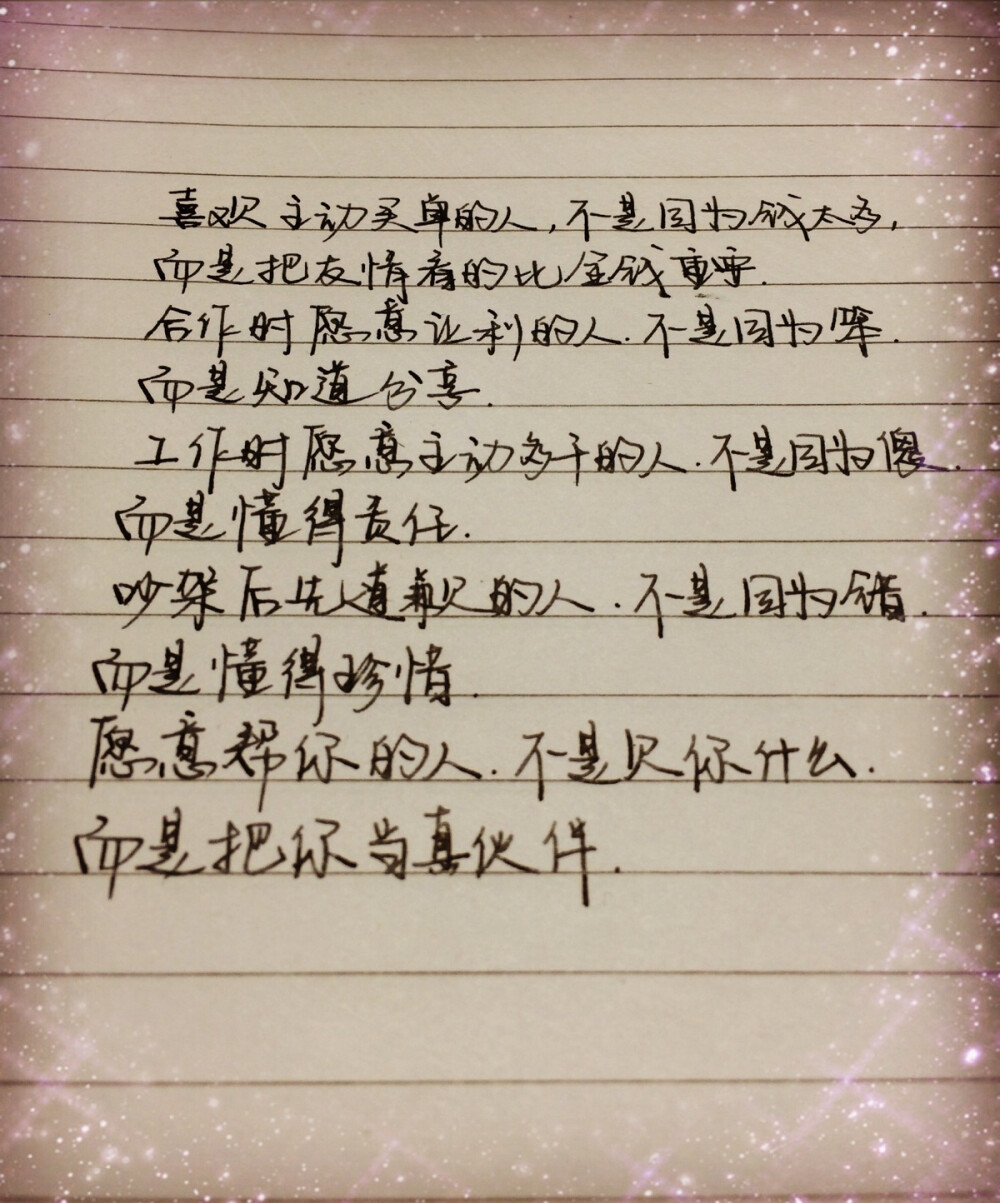 喜欢主动买单的人,不是因为钱太多,
而是把友情看的比金钱重要.
合作时愿意让利的人.不是因为笨.
而是知道分享.
工作时愿意主动多干的人.不是因为傻.
而是懂得责任.
吵架后先道歉的人.不是因为错.
而是懂得珍惜.
愿意帮你的人.不是欠你什么.
而是把你当真伙伴.